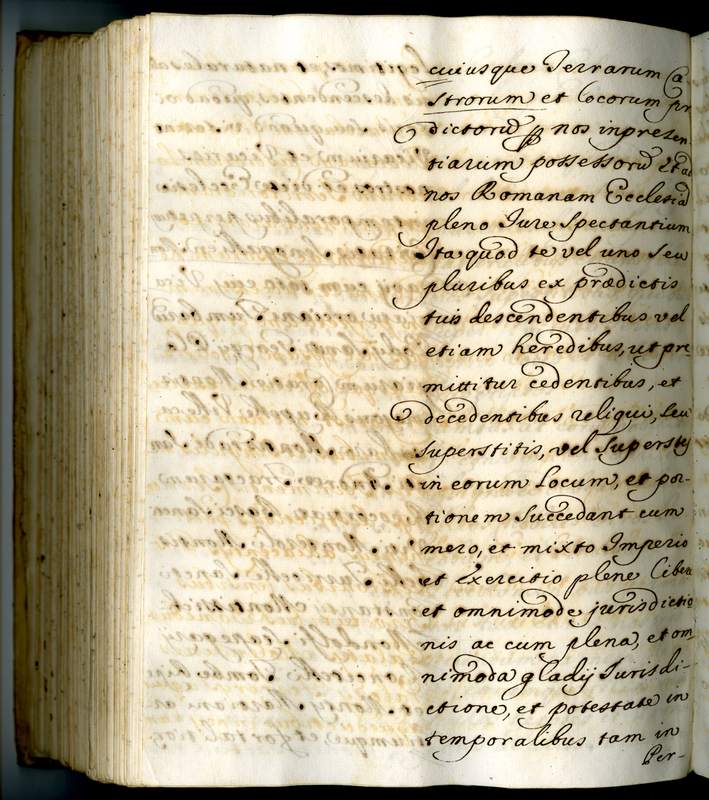 cuiusque Terrarum Ca-
strorum et locorum pr
dictorũ p nos inpresen-
tiarum possessorũ et ad
nos Romanam Ecclesiã
pleno Iure spectantium
Ita quod te vel uno seu
pluribus ex prædictis
tuis descendentibus vel
etiam heredibus, ut pre
mittitur cedentibus, et
decedentibus reliqui, seu
superstitis, vel superstes
in eorum locum, et por-
tionem succedant cum
mero, et mixto Imperio
et exercitio plene libere
et omnimode jurisdictio
nis ac cum plena, et om
nimoda gladij Iurisdi-
ctione, et potestate in
temporalibus tam in
Per-